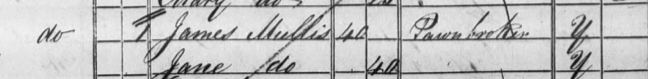 do 1 James Mullis 40 Pawnbroker Y
Jane do 40 Y